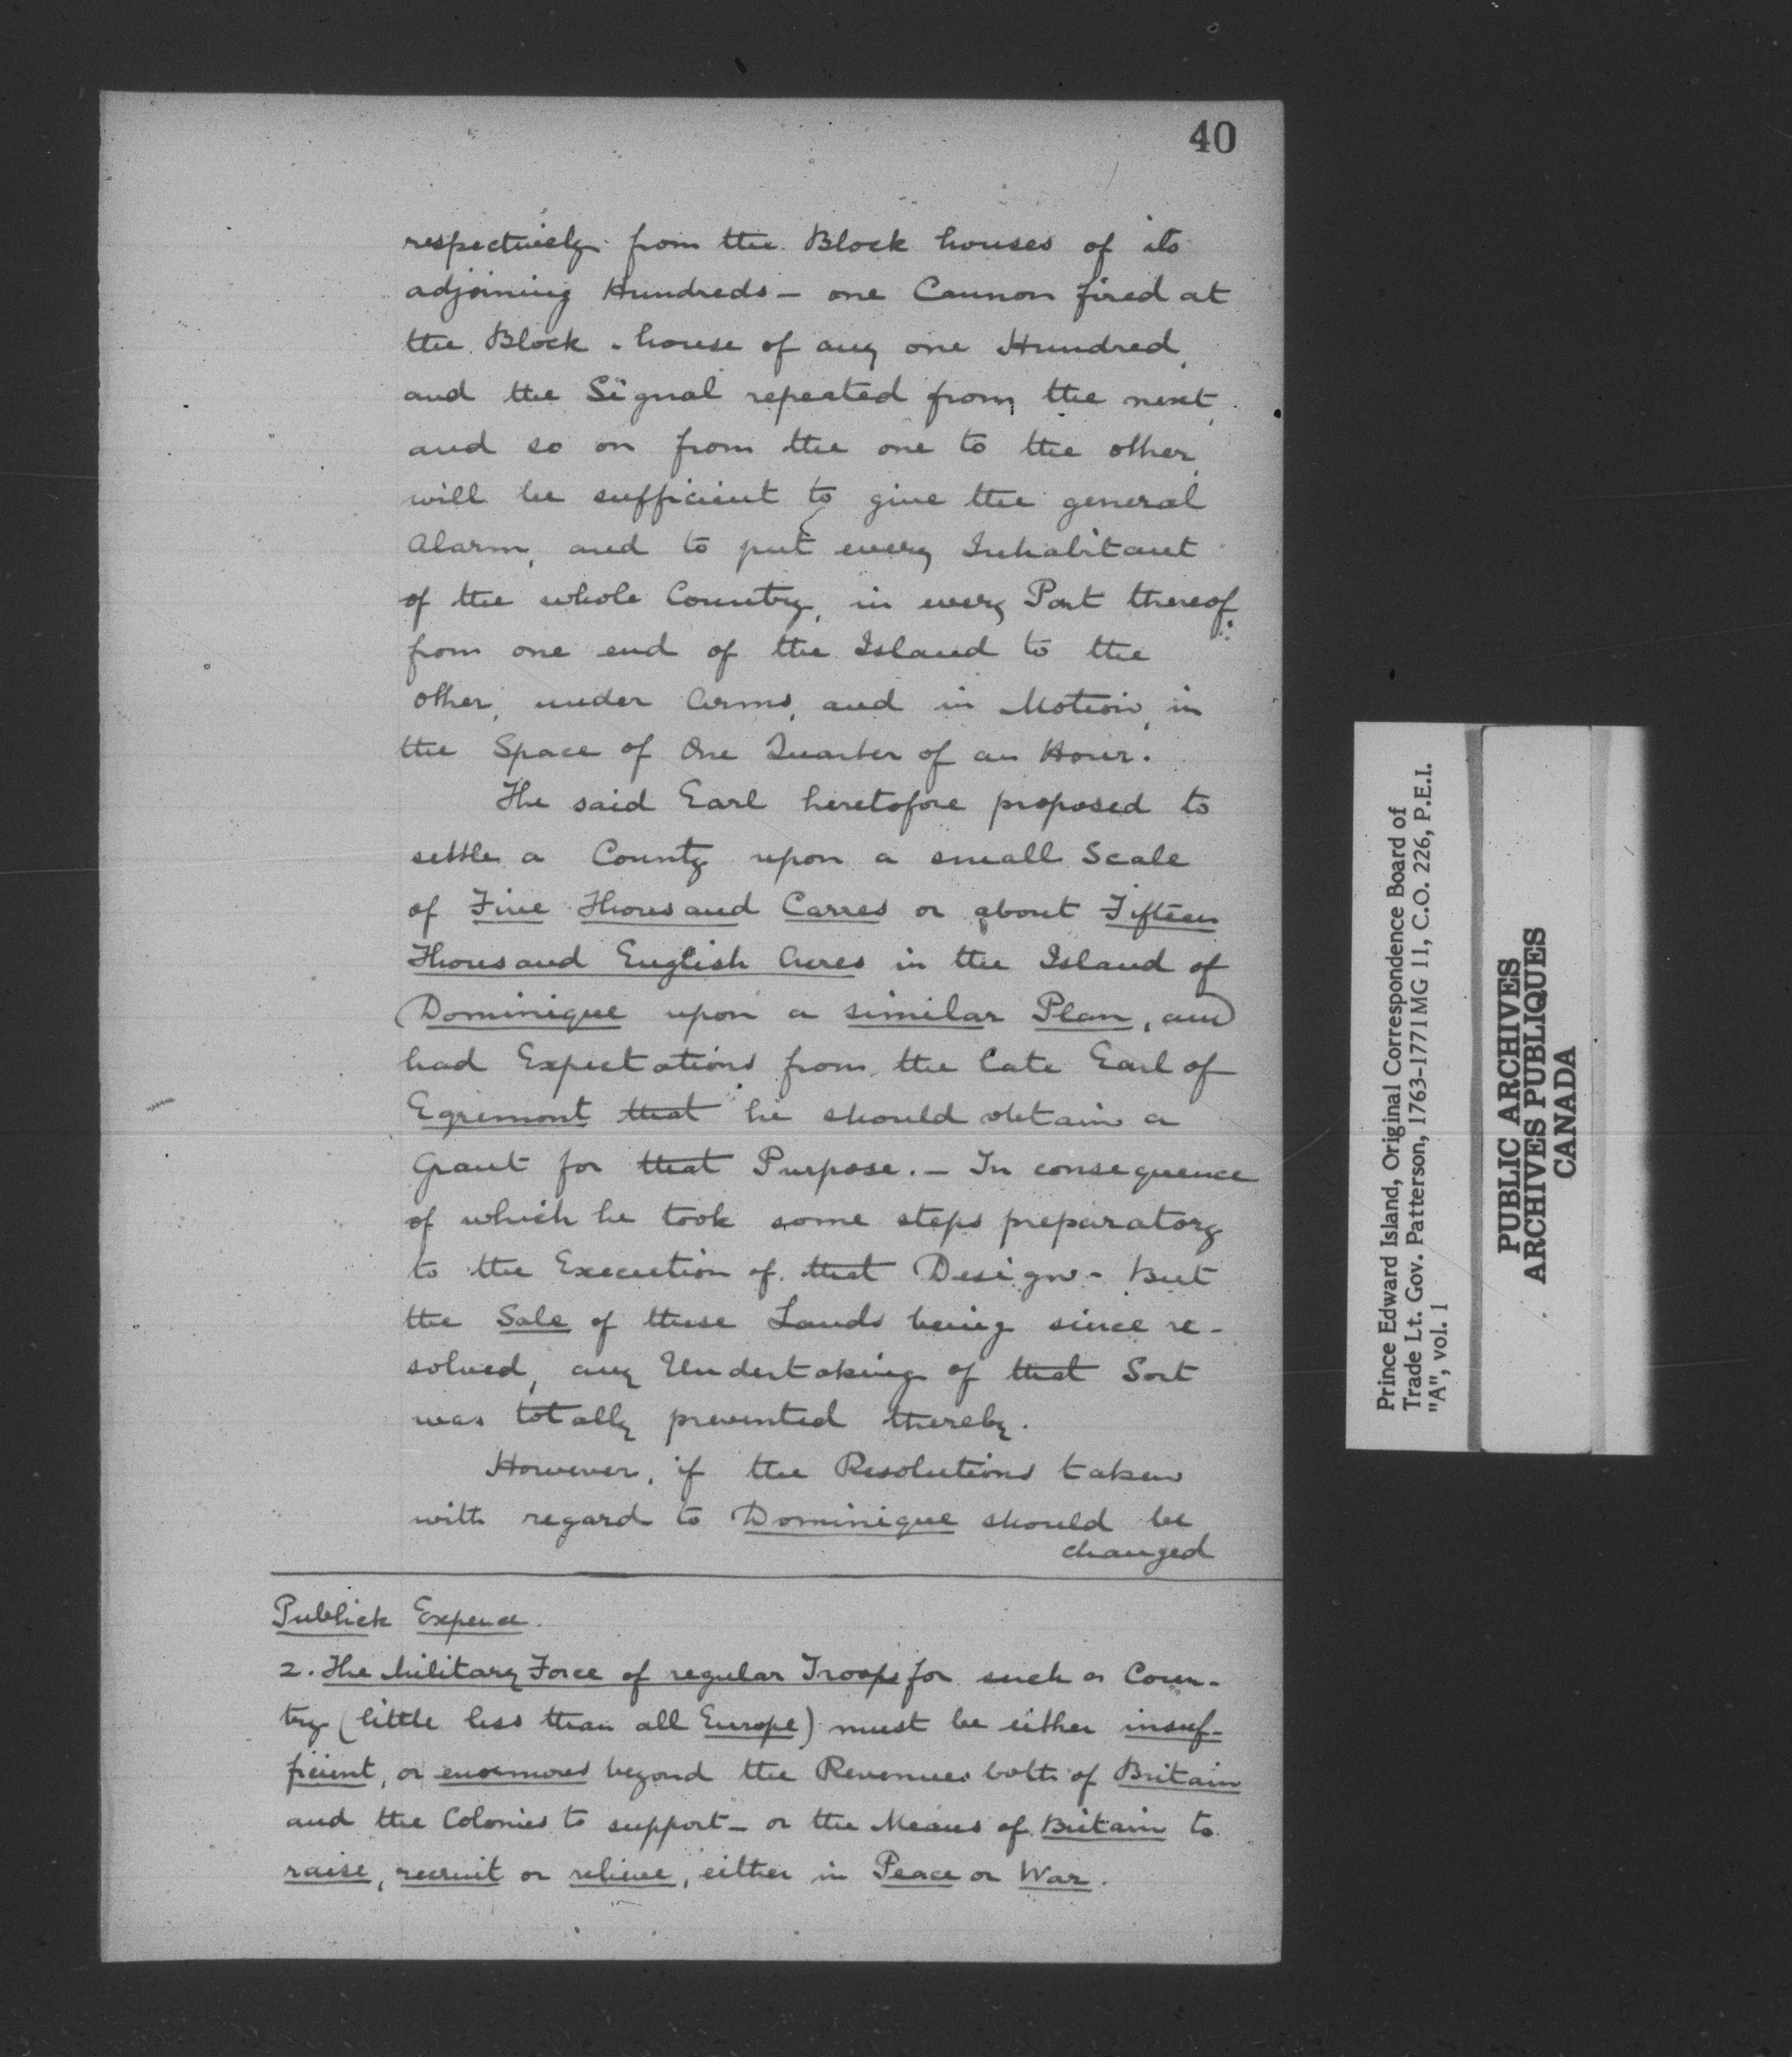 40
respectively from the Block houses of its
adjoining Hundreds - one Cannon fired at
the Block-house of any one Hundred,
and the Signal repeated from the next,
and so on from the one to the other,
will be sufficient to give the general
Alarm, and to put every Inhabitant
of the whole Country, in every Part thereof,
from one end of the Island to the
other, under Arms, and in Motion, in
the Space of One Quarter of an Hour.
The said Earl heretofore proposed to
settle a County upon a small Scale
of Five Thousand Carres or about Fifteen
Thousand English Acres in the Island of
Dominique upon a similar Plan, and
had Expectations from the late Earl of
Egremont that he should obtain a
Grant for that Purpose. - In consequence
of which he took some steps preparatory
to the Execution of that Design - But
the Sale of these Lands being since re-
solved, any Undertaking of that Sort
was totally prevented thereby.
However, if the Resolutions taken
with regard to Dominique should be
changed
Publick Expence.
2. The Military Force of regular Troops for such a Coun-
try (little less than all Europe) must be either insuf-
ficient, or enormous beyond the Revenues both of Britain
and the Colonies to support - or the Means of Britain to
raise, recruit or relieve, either in Peace or War.
Prince Edward Island, Original Correspondence Board of
Trade Lt. Gov. Patterson, 1763-1771 MG 11, C.O. 226, P.E.I.
"A", vol. 1
PUBLIC ARCHIVES
ARCHIVES PUBLIQUES
CANADA